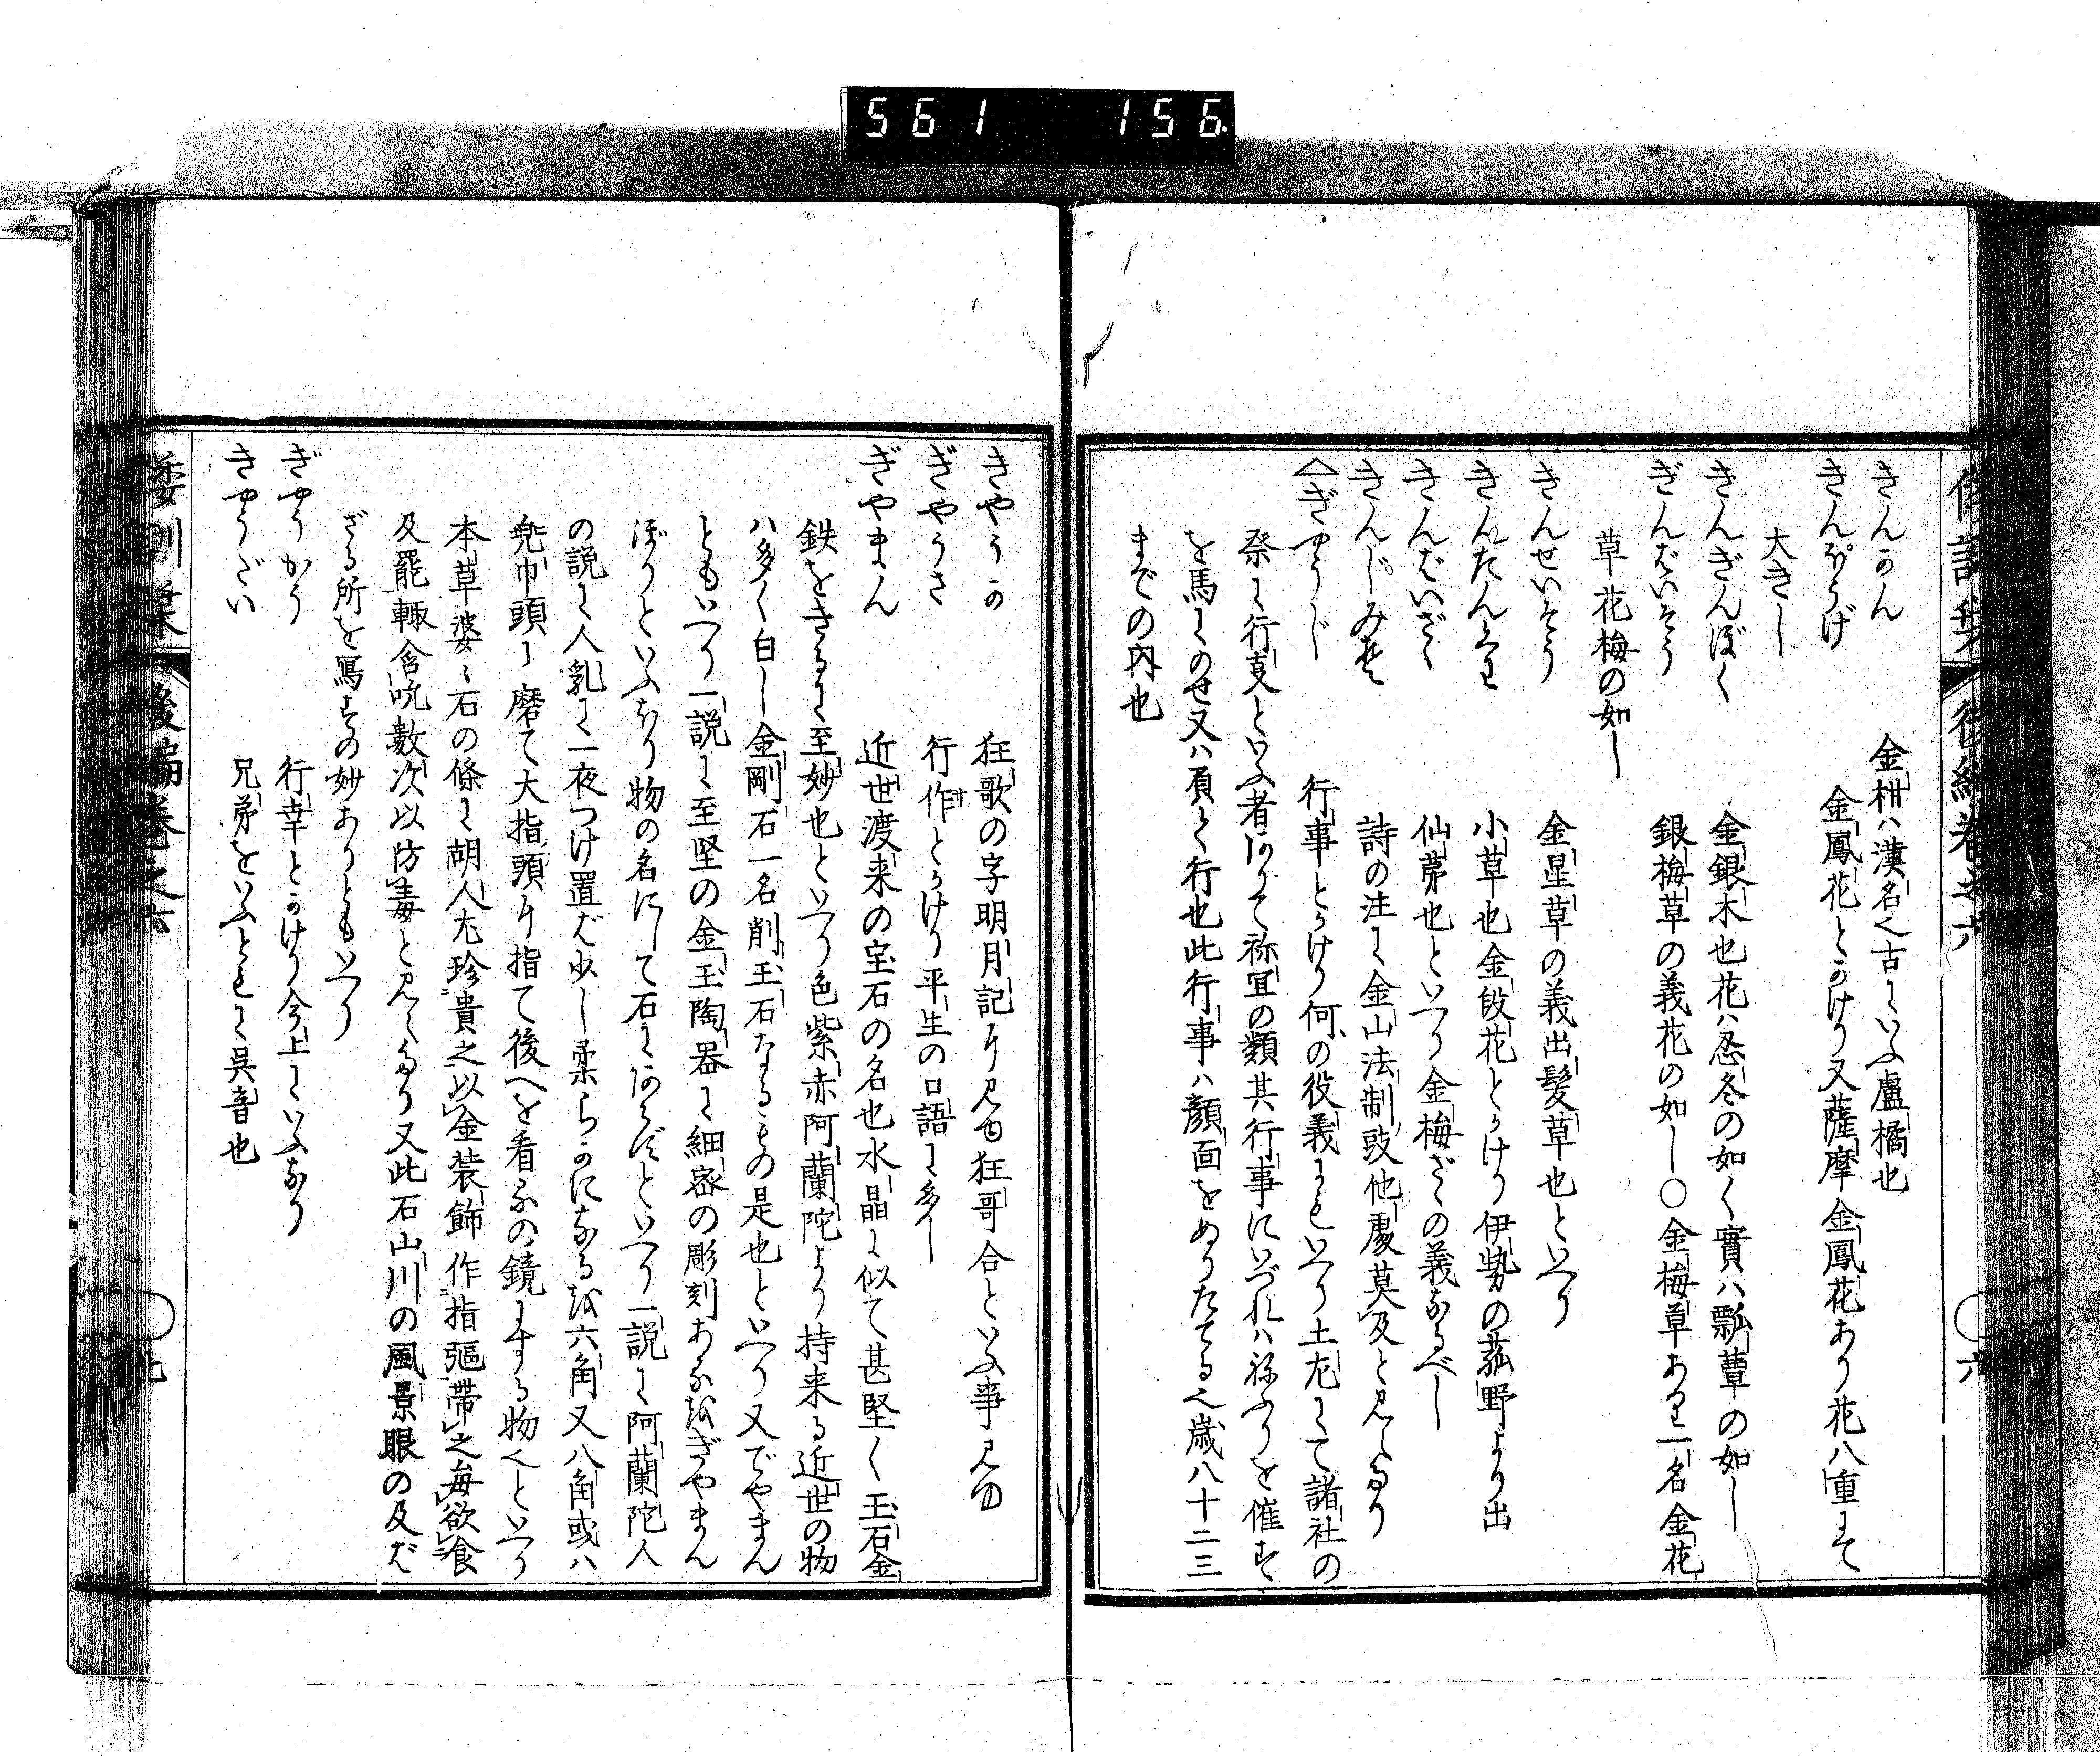 561 156
きんかん 金柑ハ漢名也古にいふ盧橘也
きんぽうげ 金鳳花とかけり又薩摩金鳳花あり花八重にて
大きし
きんぎんぼく 金銀木也花ハ忍冬の如く實ハ瓢蕈の如し
ぎんばいそう 銀梅草の義花の如し〇金梅草あり一名金花
草花梅の如し
きんせいそう 金星草の義出髪草也といへり
きんたんくわ 小草也金段花とかけり伊勢の菰野より出
きんばいざく 仙茅也といへり金梅ざくの義なるべし
きんじみそ 詩の注に金山法制豉他處莫及と見えたり
△ぎやうじ 行事とかけり何の役義にもいへり土左にて諸社の
祭に行支といふ者ありて祢宜の類其行事にいづれハ祢ふりを催す
を馬にのせ又ハ負て行也此行事ハ顔面をぬりたてる也歳八十二三
までの内也
きやうか 狂歌の字明月記に見ゆ狂哥合といふ事見ゆ
ぎやうさ 行作とかけり平生の口語に多し
ぎやまん 近世渡来の宝石の名也水晶に似て甚堅く玉石金
鉄をきるに至妙也といへり色紫赤阿蘭陀より持来る近世の物
ハ多く白し金剛石一名削玉石なるもの是也といへり又でやまん
ともいへり一説に至堅の金玉陶器に細密の彫刻あるをぎやまん
ぼりといふなり物の名にして石にあらずといへり一説に阿蘭陀人
の説に人乳に一夜つけ置ば少し柔らかになる故六角又八角或ハ
兜巾頭に磨て大指頭に指て後へを看るの鏡にする物也といへり
本草婆々石の條に胡人尤珍貴之以金装飾作指彄帯之毎欲食
及罷輙含吮數次以防毒と見えたり又此石山川の風景眼の及ば
ざる所を寫すの妙ありともいへり
ぎやうかう 行幸とかけり今上にいふなり
きやうだい 兄弟をいふともに呉音也
倭訓栞 後編巻之六